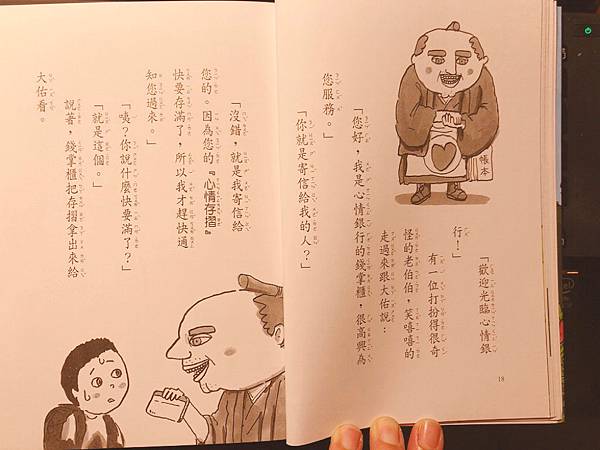 帳本
「歡迎光臨心情銀
行！」
有一位打扮得很奇
怪的老伯伯，笑嘻嘻的
走過來跟大佑說：
「您好，我是心情銀行的錢掌櫃，很高興為
您服務。」
「你就是寄信給我的人？」
18
「沒錯，就是我寄信給
您的。因為您的『心情存摺』
快要存滿了，所以我才趕快通
知您過來。」
「咦？你說什麼快要滿了？」
「就是這個。」
說著，錢掌櫃把存摺拿出來給
大佑看。